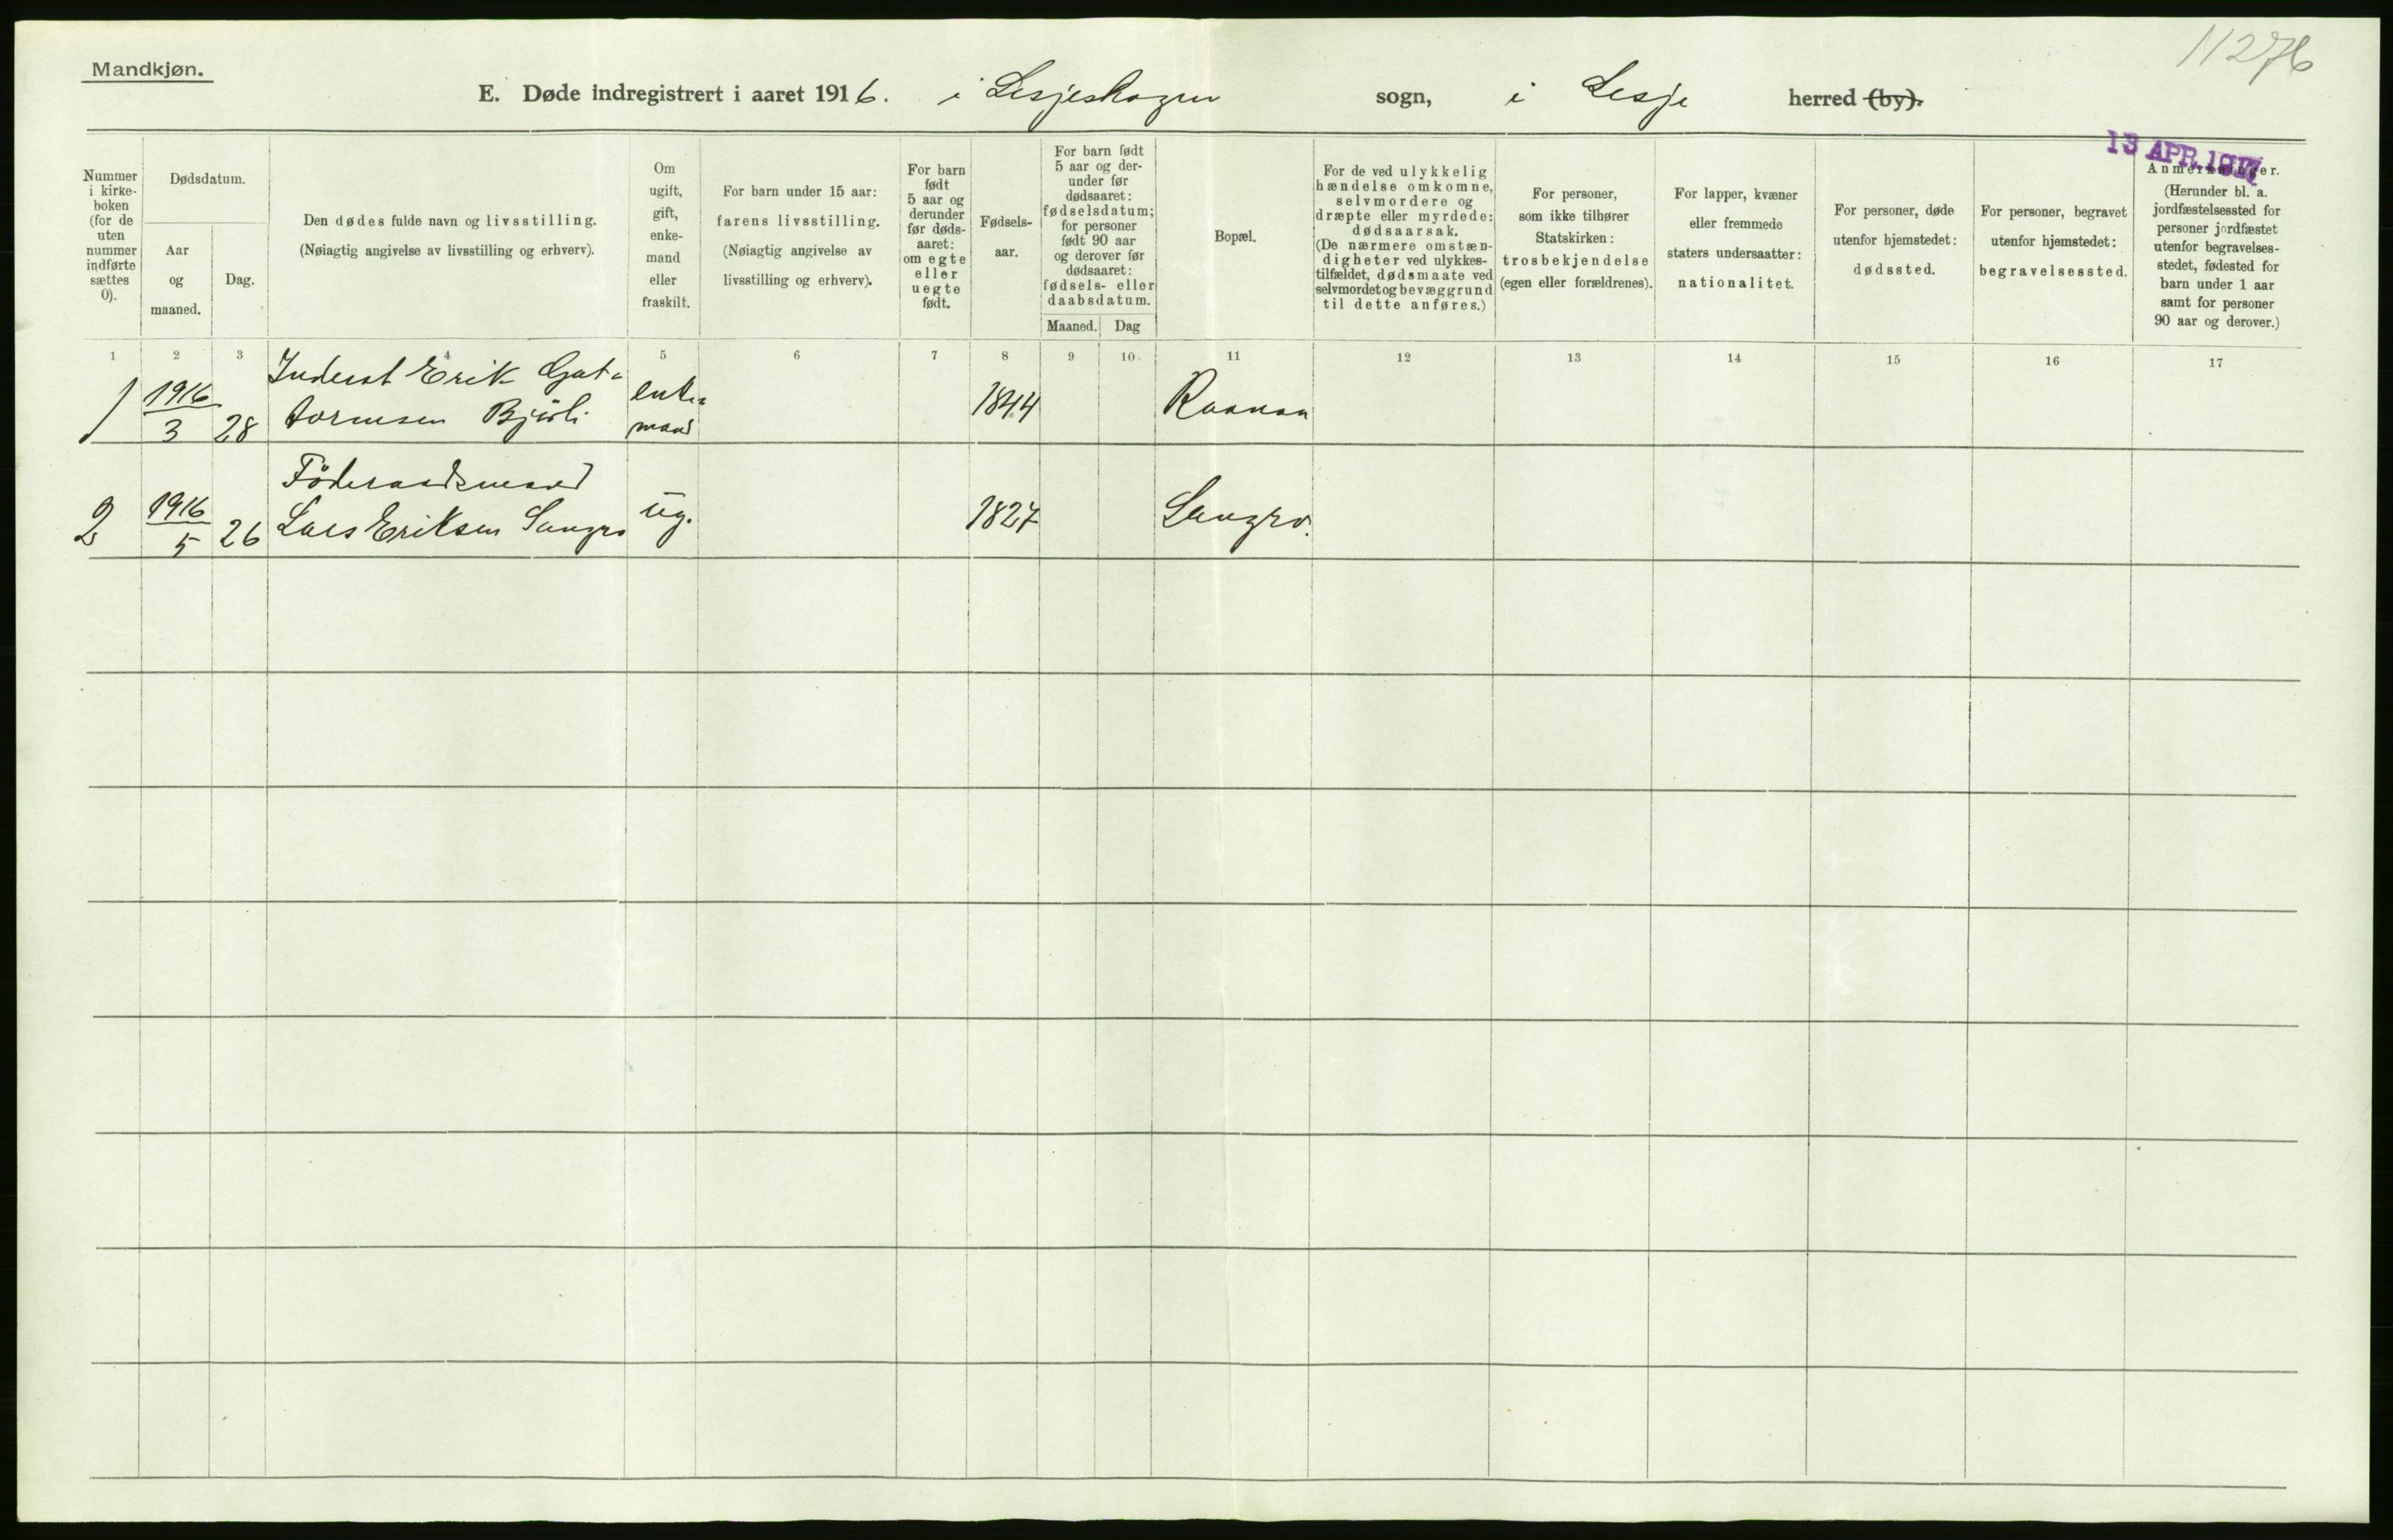 11276
Mandkjøn.
E. Døde indregistrert i aaret 1916. i Lesjeskogen sogn, i Lesje herred (by).
13 APR. 1917
Nummer
i kirke-
boken
(for de
uten
nummer
indførte
sættes
0).
Dødsdatum.
Aar
og
maaned.
Dag.
Den dødes fulde navn og livsstilling.
(Nøiagtig angivelse av livsstilling og erhverv).
Om
ugift,
gift,
enke-
mand
eller
fraskilt.
For barn under 15 aar:
farens livsstilling.
(Nøiagtig angivelse av
livsstilling og erhverv).
For barn
født
5 aar og
derunder
før døds-
aaret:
om egte
eller
uegte
født.
Fødsels-
aar.
For barn født
5 aar og der-
under før
dødsaaret:
fødselsdatum;
for personer
født 90 aar
og derover før
dødsaaret:
fødsels- eller
daabsdatum.
Maaned. Dag
Bopæl.
For de ved ulykkelig
hændelse omkomne,
selvmordere og
dræpte eller myrdede:
dødsaarsak.
(De nærmere omstæn-
digheter ved ulykkes-
tilfældet, dødsmaate ved
selvmordet og bevæggrund
til dette anføres.)
For personer,
som ikke tilhører
Statskirken:
trosbekjendelse
(egen eller forældrenes).
For lapper, kvæner
eller fremmede
staters undersaatter:
nationalitet.
For personer, døde
utenfor hjemstedet:
dødssted.
For personer, begravet
utenfor hjemstedet:
begravelsessted.
Anmerkninger.
(Herunder bl. a.
jordfæstelsessted for
personer jordfæstet
utenfor begravelses-
stedet, fødested for
barn under 1 aar
samt for personer
90 aar og derover.)
1 2 3 4 5 6 7 8 9 10. 11 12 13 14 15 16 17
1 1916/3 28 Inderst Erik Gut-
tormsen Bjørli enke-
mand 1844
2 1916/5 26 Föderaadsmand
Lars Eriksen ug. 1827